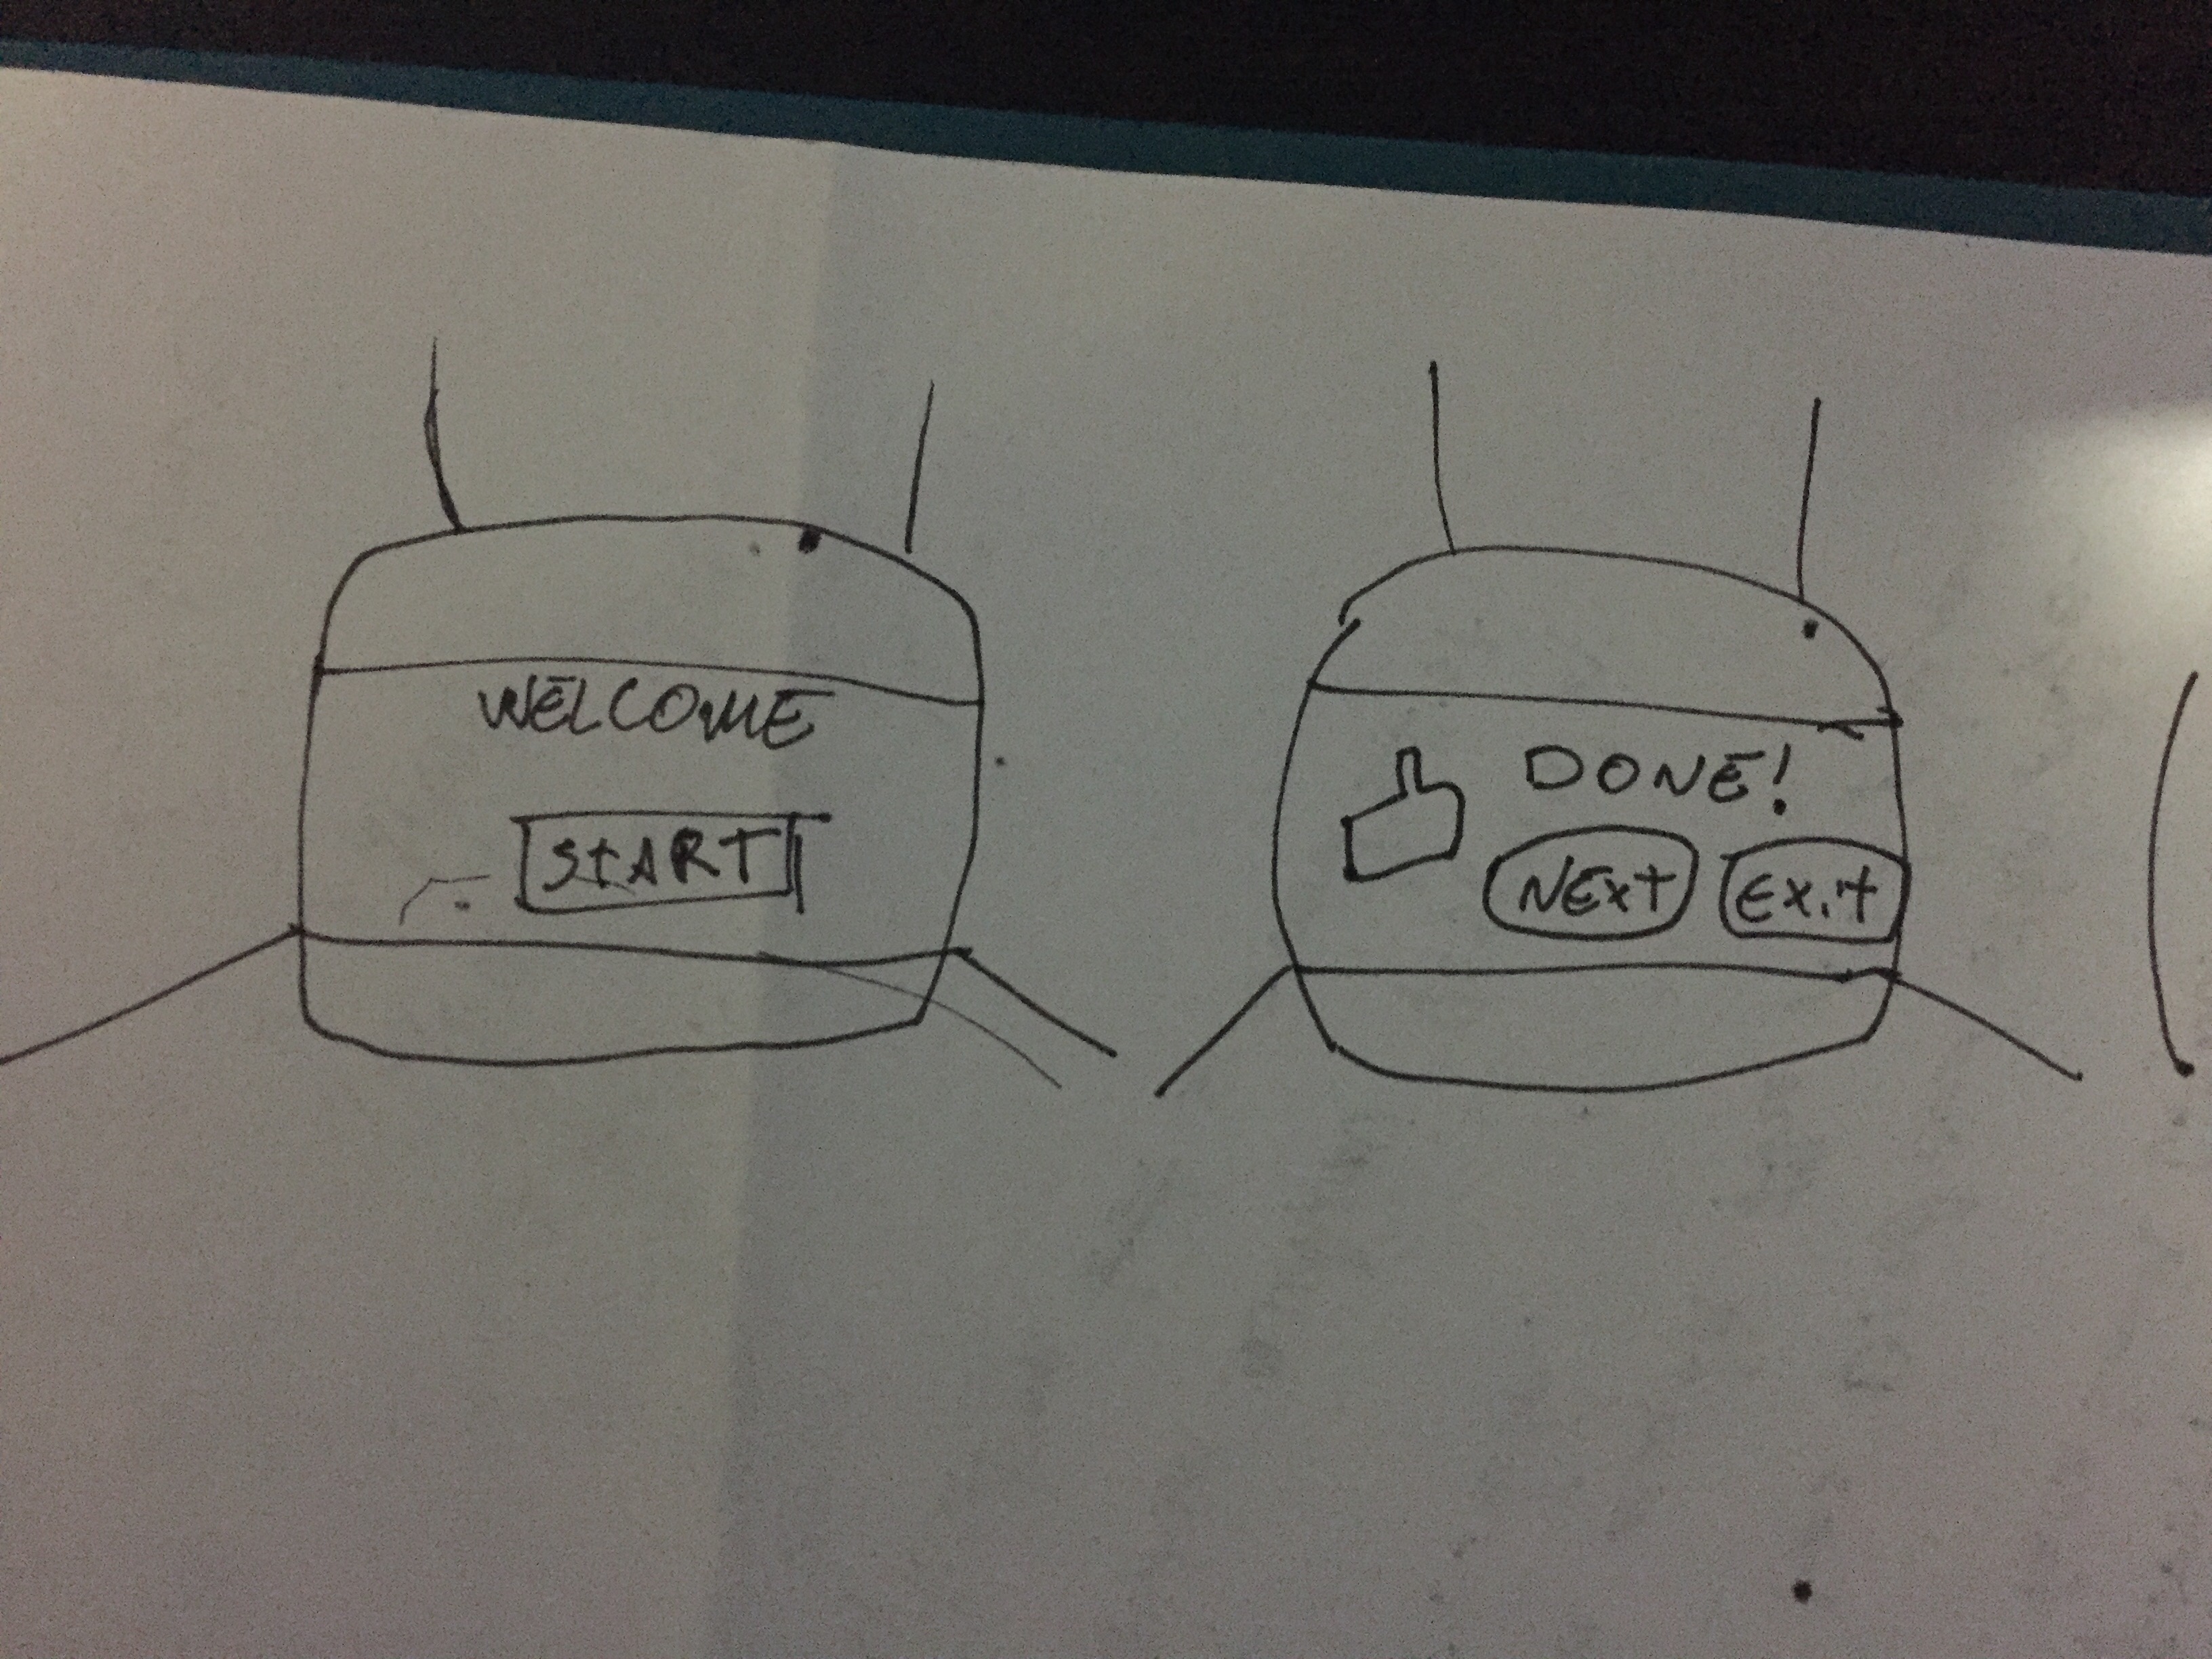 WELCOME
START
DONE!
NEXT
Exit